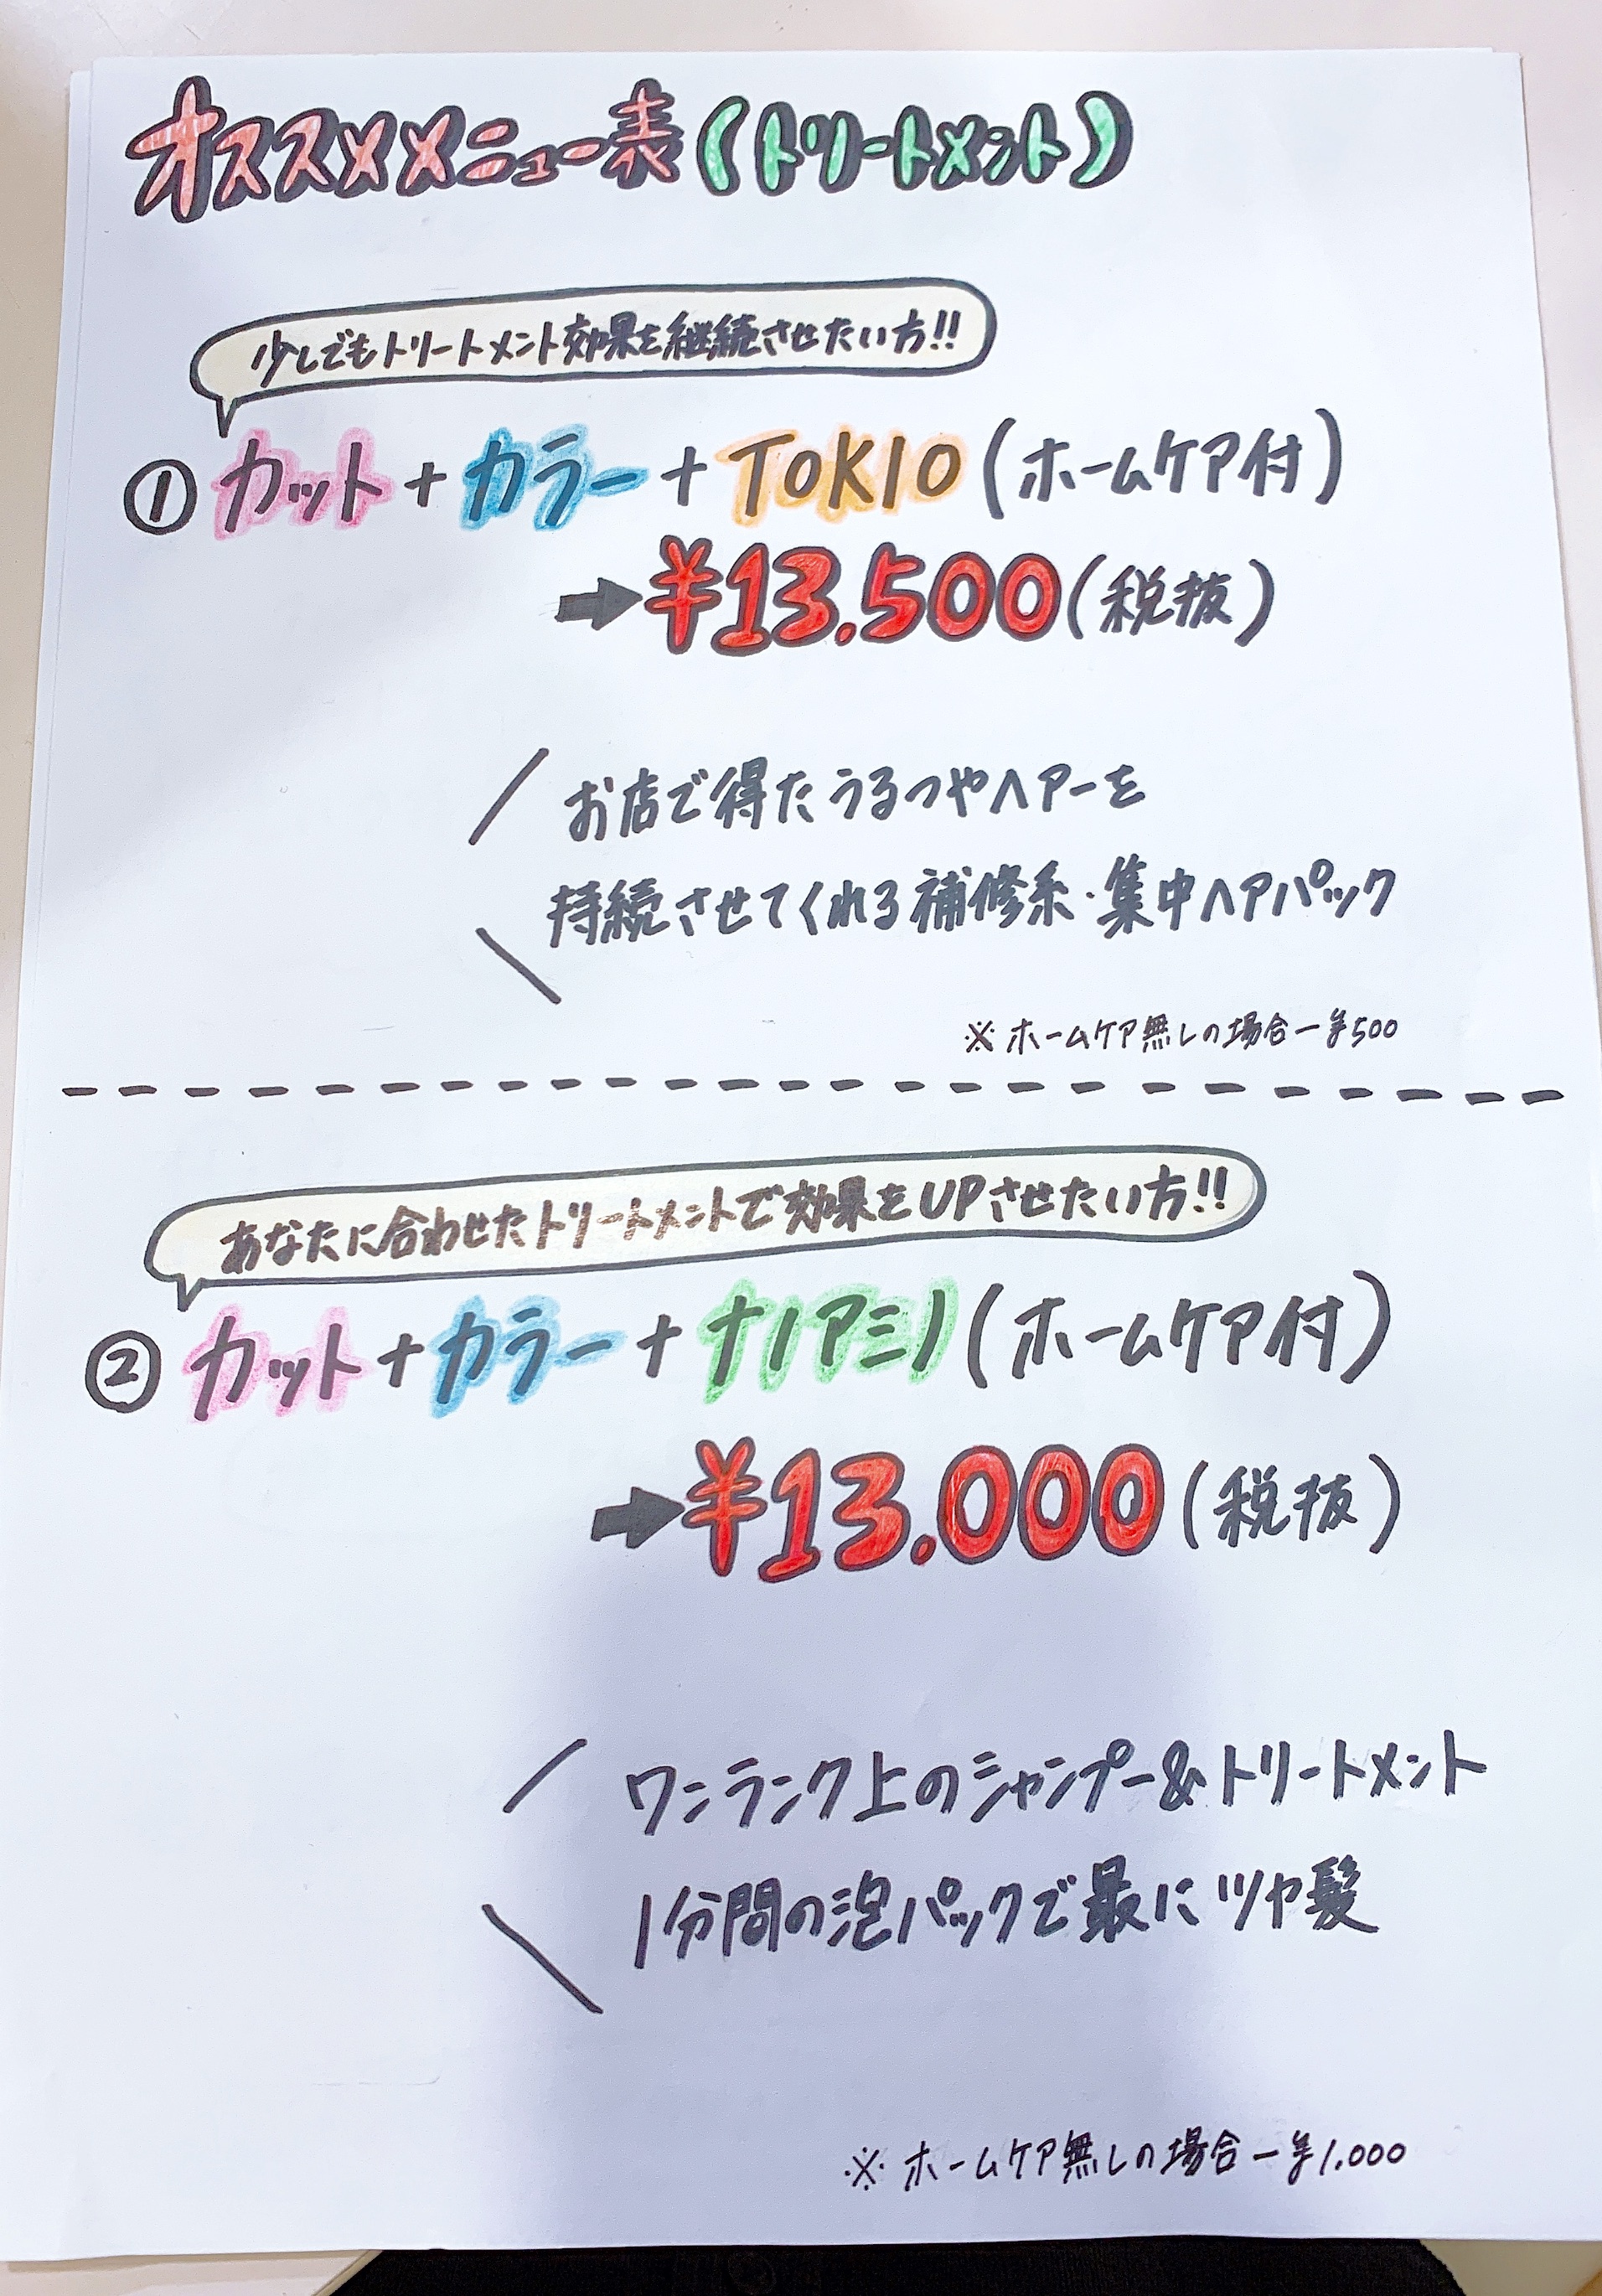 オススメメニュー表(トリートメント)
少しでもトリートメント効果を継続させたい方!!
① カット+カラー+TOKIO(ホームケア付)
➡¥13.500(税抜)
お店で得たうるつやヘアーを
持続させてくれる補修系・集中ヘアパック
※ ホームケア無しの場合-¥500
あなたに合わせたトリートメントで効果をUPさせたい方!!
② カット+カラー+ナノアミノ(ホームケア付)
➡¥13.000(税抜)
ワンランク上のシャンプー&トリートメント
1分間の泡パックで最にツヤ髪
※ ホームケア無しの場合-¥1.000